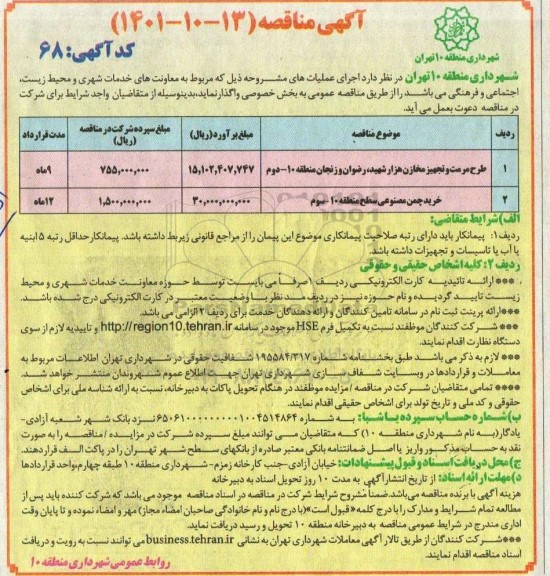 آگهی مناقصه (۱۳-۱۰-۱۴۰۱)
کد آگهی: ۶۸
شهرداری منطقه ۱۰ تهران
شهرداری منطقه ۱۰ تهران در نظر دارد اجرای عملیات های مشروحه ذیل که مربوط به معاونت های خدمات شهری و محیط زیست،
اجتماعی و فرهنگی می باشد را از طریق مناقصه عمومی به بخش خصوصی واگذار نماید، بدینوسیله از متقاضیان واجد شرایط برای شرکت
در مناقصه دعوت بعمل می آید.
ردیف موضوع مناقصه مبلغ برآورد (ریال) مبلغ سپرده شرکت در مناقصه (ریال) مدت قرارداد
۱ طرح مرمت و تجهیز مخازن هزار شهید، رضوان و زنجان منطقه ۱۰-دوم ۱۵,۱۰۲,۴۰۷,۷۴۷ ۷۵۵,۰۰۰,۰۰۰ ۹ماه
۲ خرید چمن مصنوعی سطح منطقه ۱۰-سوم ۳۰,۰۰۰,۰۰۰,۰۰۰ ۱,۵۰۰,۰۰۰,۰۰۰ ۱۲ماه
الف) شرایط متقاضی:
ردیف ۱: پیمانکار باید دارای رتبه صلاحیت پیمانکاری موضوع این پیمان را از مراجع قانونی زیربط داشته باشد. پیمانکار حداقل رتبه ۵ ابنیه
یا آب یا تاسیسات و تجهیزات داشته باشد.
ردیف ۲: کلیه اشخاص حقیقی و حقوقی
*** ارائه تائیدیه کارت الکترونیکی ردیف ۱ صرفا می بایست توسط حوزه معاونت خدمات شهری و محیط
زیست تایید گردیده و نام حوزه نیز در ردیف مد نظر با وضعیت معتبر در کارت الکترونیکی درج شده باشد.
***ارائه پرینت ثبت نام در سامانه تامین کنندگان و ارائه دهندگان خدمت برای ردیف ۲ الزامی می باشد.
*** شرکت کنندگان موظفند نسبت به تکمیل فرم HSE موجود در سامانه http://region10.tehran.ir و تاییدیه لازم از سوی
دستگاه نظارت اقدام نمایند.
*** لازم به ذکر می باشد طبق بخشنامه شماره ۱۹۵۵۸۴/۳۱۷ شفافیت حقوقی در شهرداری تهران اطلاعات مربوط به
معاملات و قراردادها در وبسایت شفاف سازی شهرداری تهران جهت اطلاع عموم شهروندان منتشر خواهد شد.
**** تمامی متقاضیان شرکت در مناقصه / مزایده موظفند در هنگام تحویل پاکات به دبیرخانه، نسبت به ارائه شناسه ملی برای اشخاص
حقوقی و کد ملی و تاریخ تولد برای اشخاص حقیقی اقدام نمایند.
ب) شماره حساب سپرده یا شبا: به شماره نزد بانک شهر شعبه آزادی-
یادگار (به نام شهرداری منطقه ۱۰) که متقاضیان می توانند مبلغ سپرده شرکت در مزایده / مناقصه را به صورت
نقد به حساب مذکور واریز یا اصل ضمانتنامه بانکی معتبر صادره از بانکهای سطح شهر تهران را در پاکت الف قرار دهند.
ج) محل دریافت اسناد و قبول پیشنهادات: خیابان آزادی-جنب کارخانه زمزم-شهرداری منطقه ۱۰ طبقه چهارم، واحد قراردادها
د) مهلت ارائه اسناد: از تاریخ انتشار آگهی به مدت ۱۰ روز تحویل اسناد به دبیرخانه
هزینه آگهی با برنده مناقصه می باشد. ضمناً مشروح شرایط شرکت در مناقصه در اسناد مناقصه موجود می باشد که شرکت کننده باید پس از
مطالعه تمام شرایط و مدارک را با درج کلمه «قبول است» (با درج نام و نام خانوادگی صاحبان امضاء مجاز) مهر و امضاء نموده و تا پایان وقت
اداری مندرج در شرایط عمومی مناقصه به دبیرخانه منطقه ۱۰ تحویل و رسید دریافت نماید.
***شرکت کنندگان از طریق تالار آگهی معاملات شهرداری تهران به نشانی business.tehran.ir می توانند نسبت به رویت و دریافت
اسناد مناقصه اقدام نمایند.
روابط عمومی شهرداری منطقه ۱۰